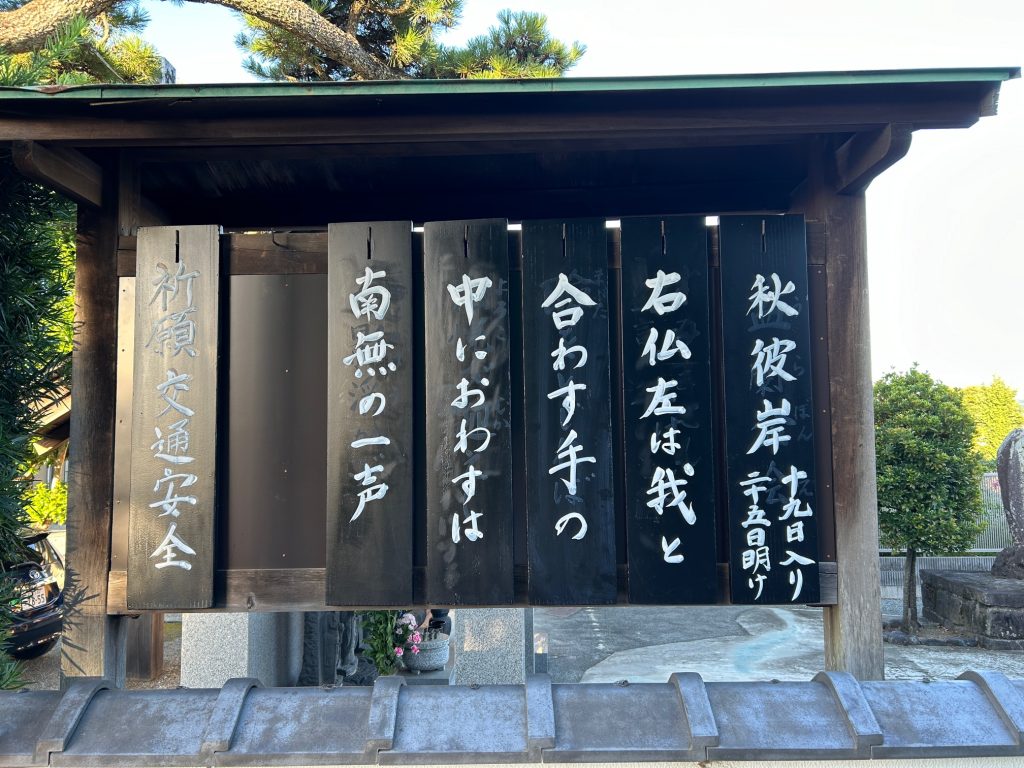 秋彼岸
十九日入り
二十五日明け
右仏左は我と
合わす手の
中におわすは
南無の一声
祈願交通安全